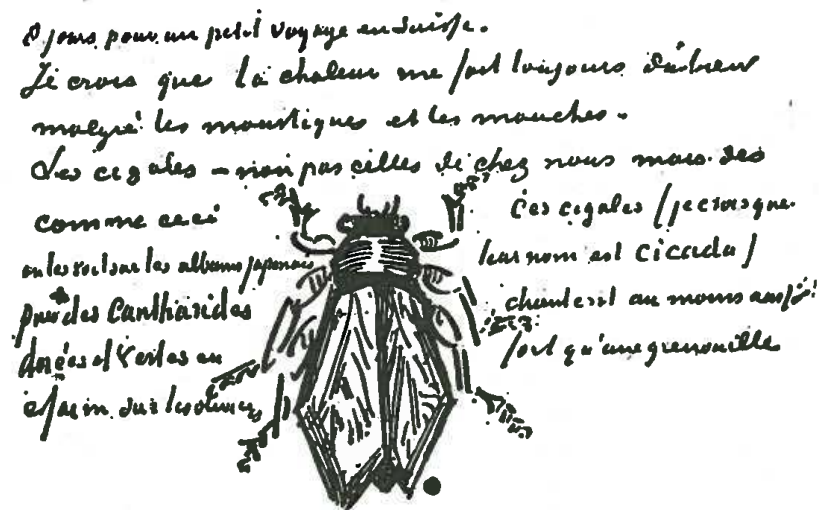 8 jours pour un petit voyage en Suisse.
Je crois que la chaleur me fait toujours du bien
malgré les moustiques et les mouches.
Les cigales – non pas celles de chez nous mais des
comme ceci
on les voit sur les albums japonais
puis des Cantharides
dorées et vertes en
essaim sur les oliviers
Ces cigales (je crois que
leur nom est cicada)
chantent au moins aussi
fort qu'une grenouille